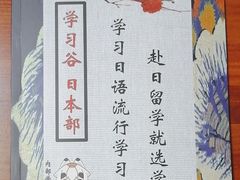 赴日留学就选学
学习日语流行学习
学习谷 日本部
内部